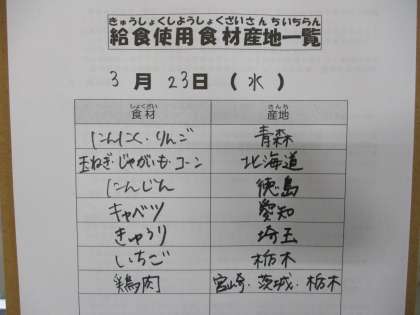 きゅうしょくしようしょくざいさんちいちらん
給食使用食材産地一覧
3月23日(水)
しょくざい さんち
食材 産地
にんにく・りんご 青森
玉ねぎ・じゃがいも・コーン 北海道
にんじん 徳島
キャベツ 愛知
きゅうり 埼玉
いちご 栃木
鶏肉 宮崎・茨城・栃木